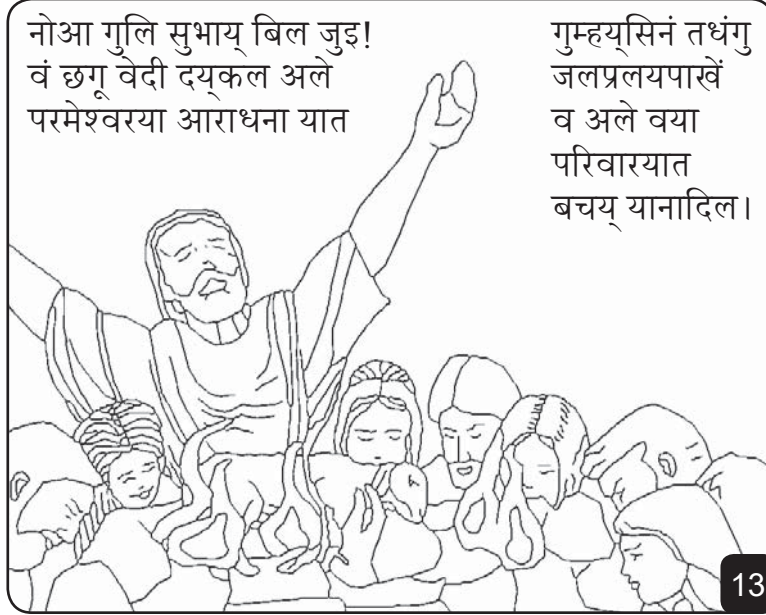 नोआ गुलि सुभाय् बिल जुइ!
वं छगू वेदी दय्‌कल अले
परमेश्वरया आराधना यात
गुम्हय्‌सिनं तधंगु
जलप्रलयपाखें
व अले वया
परिवारयात
बचय् यानादिल।
13